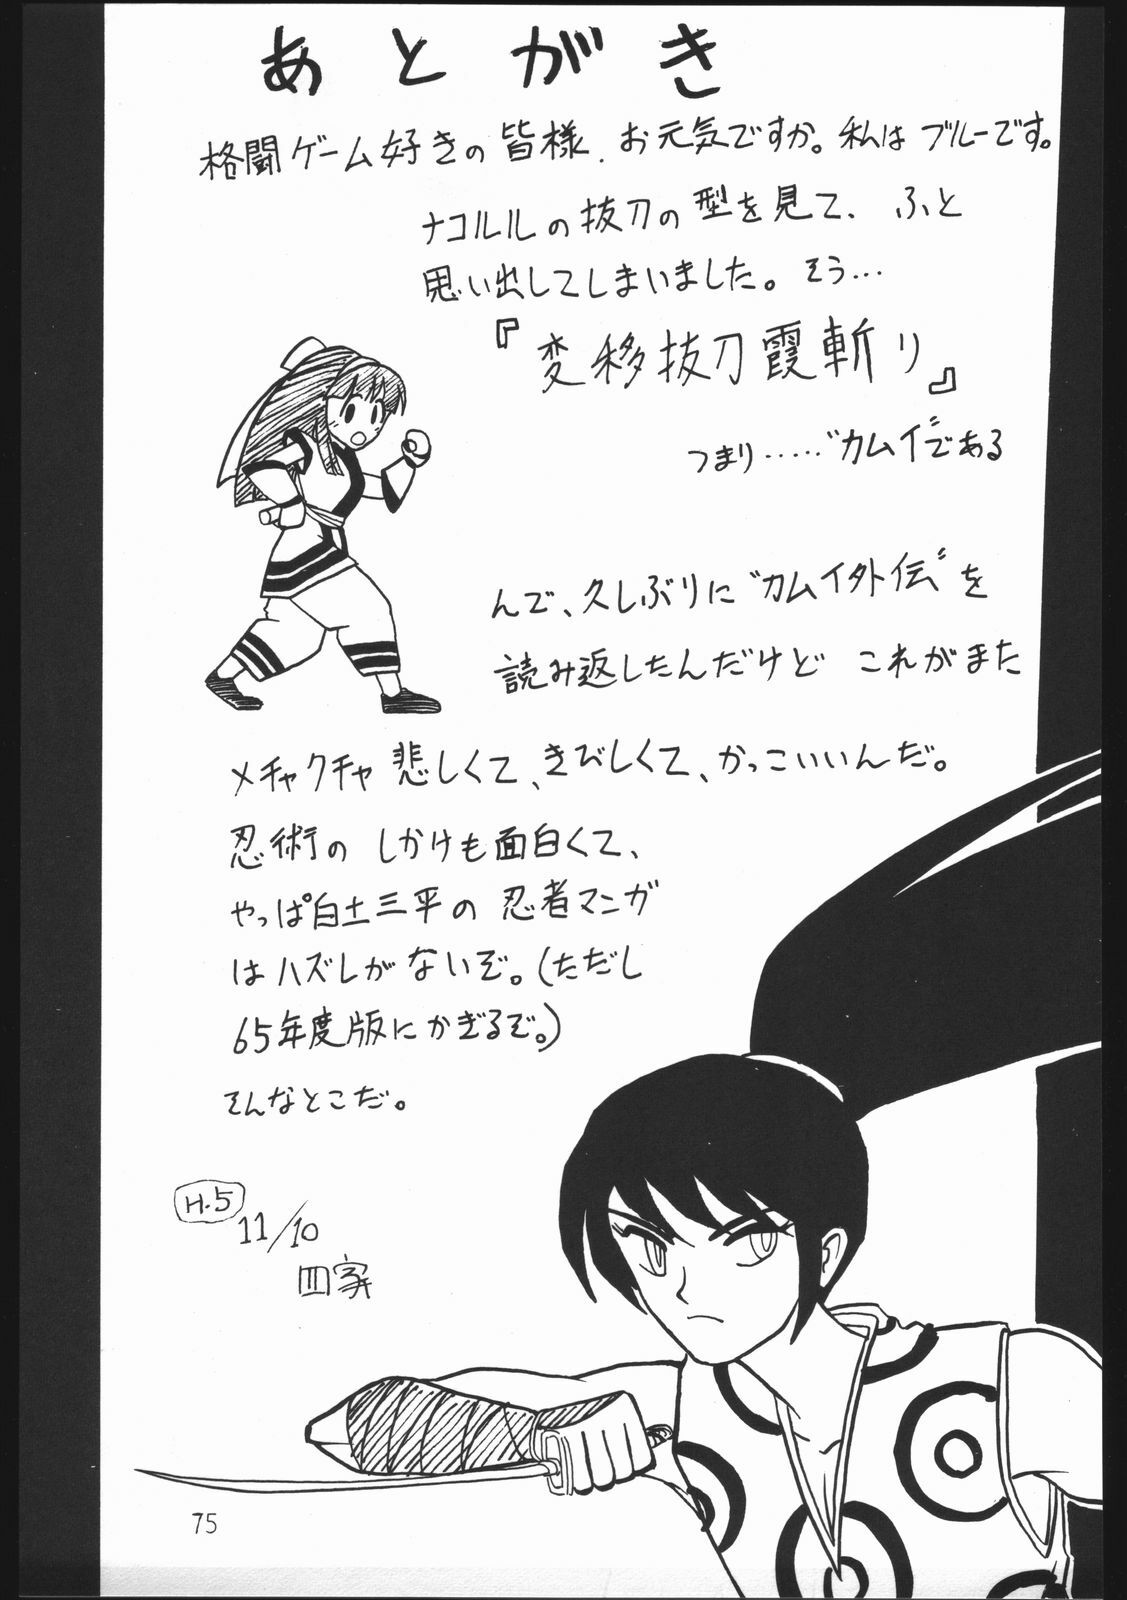 あとがき
格闘ゲーム好きの皆様、お元気ですか。私はブルーです。
ナコルルの抜刀の型を見て、ふと
思い出してしまいました。そう…
『変移抜刀霞斬り』
つまり……“カムイ”である
んで、久しぶりに“カムイ外伝”を
読み返したんだけど これがまた
メチャクチャ悲しくて、きびしくて、かっこいいんだ。
忍術の しかけも面白くて、
やっぱ白土三平の 忍者マンガ
はハズレがないぞ。(ただし
65年度版にかぎるぞ。)
そんなとこだ。
H.5
11/10
四家
75